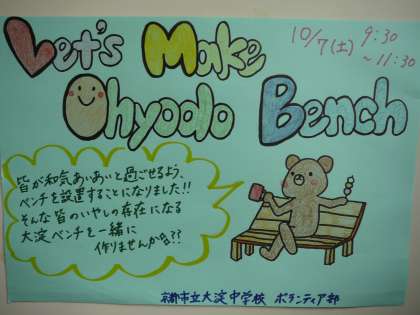 Let's Make
10/7(土) 9:30
~11:30
Ohyodo Bench
皆が和気あいあいと過ごせるよう、
ベンチを設置することになりました!!
そんな皆のいやしの存在になる
大淀ベンチを一緒に
作りませんか??
京都市立大淀中学校 ボランティア部